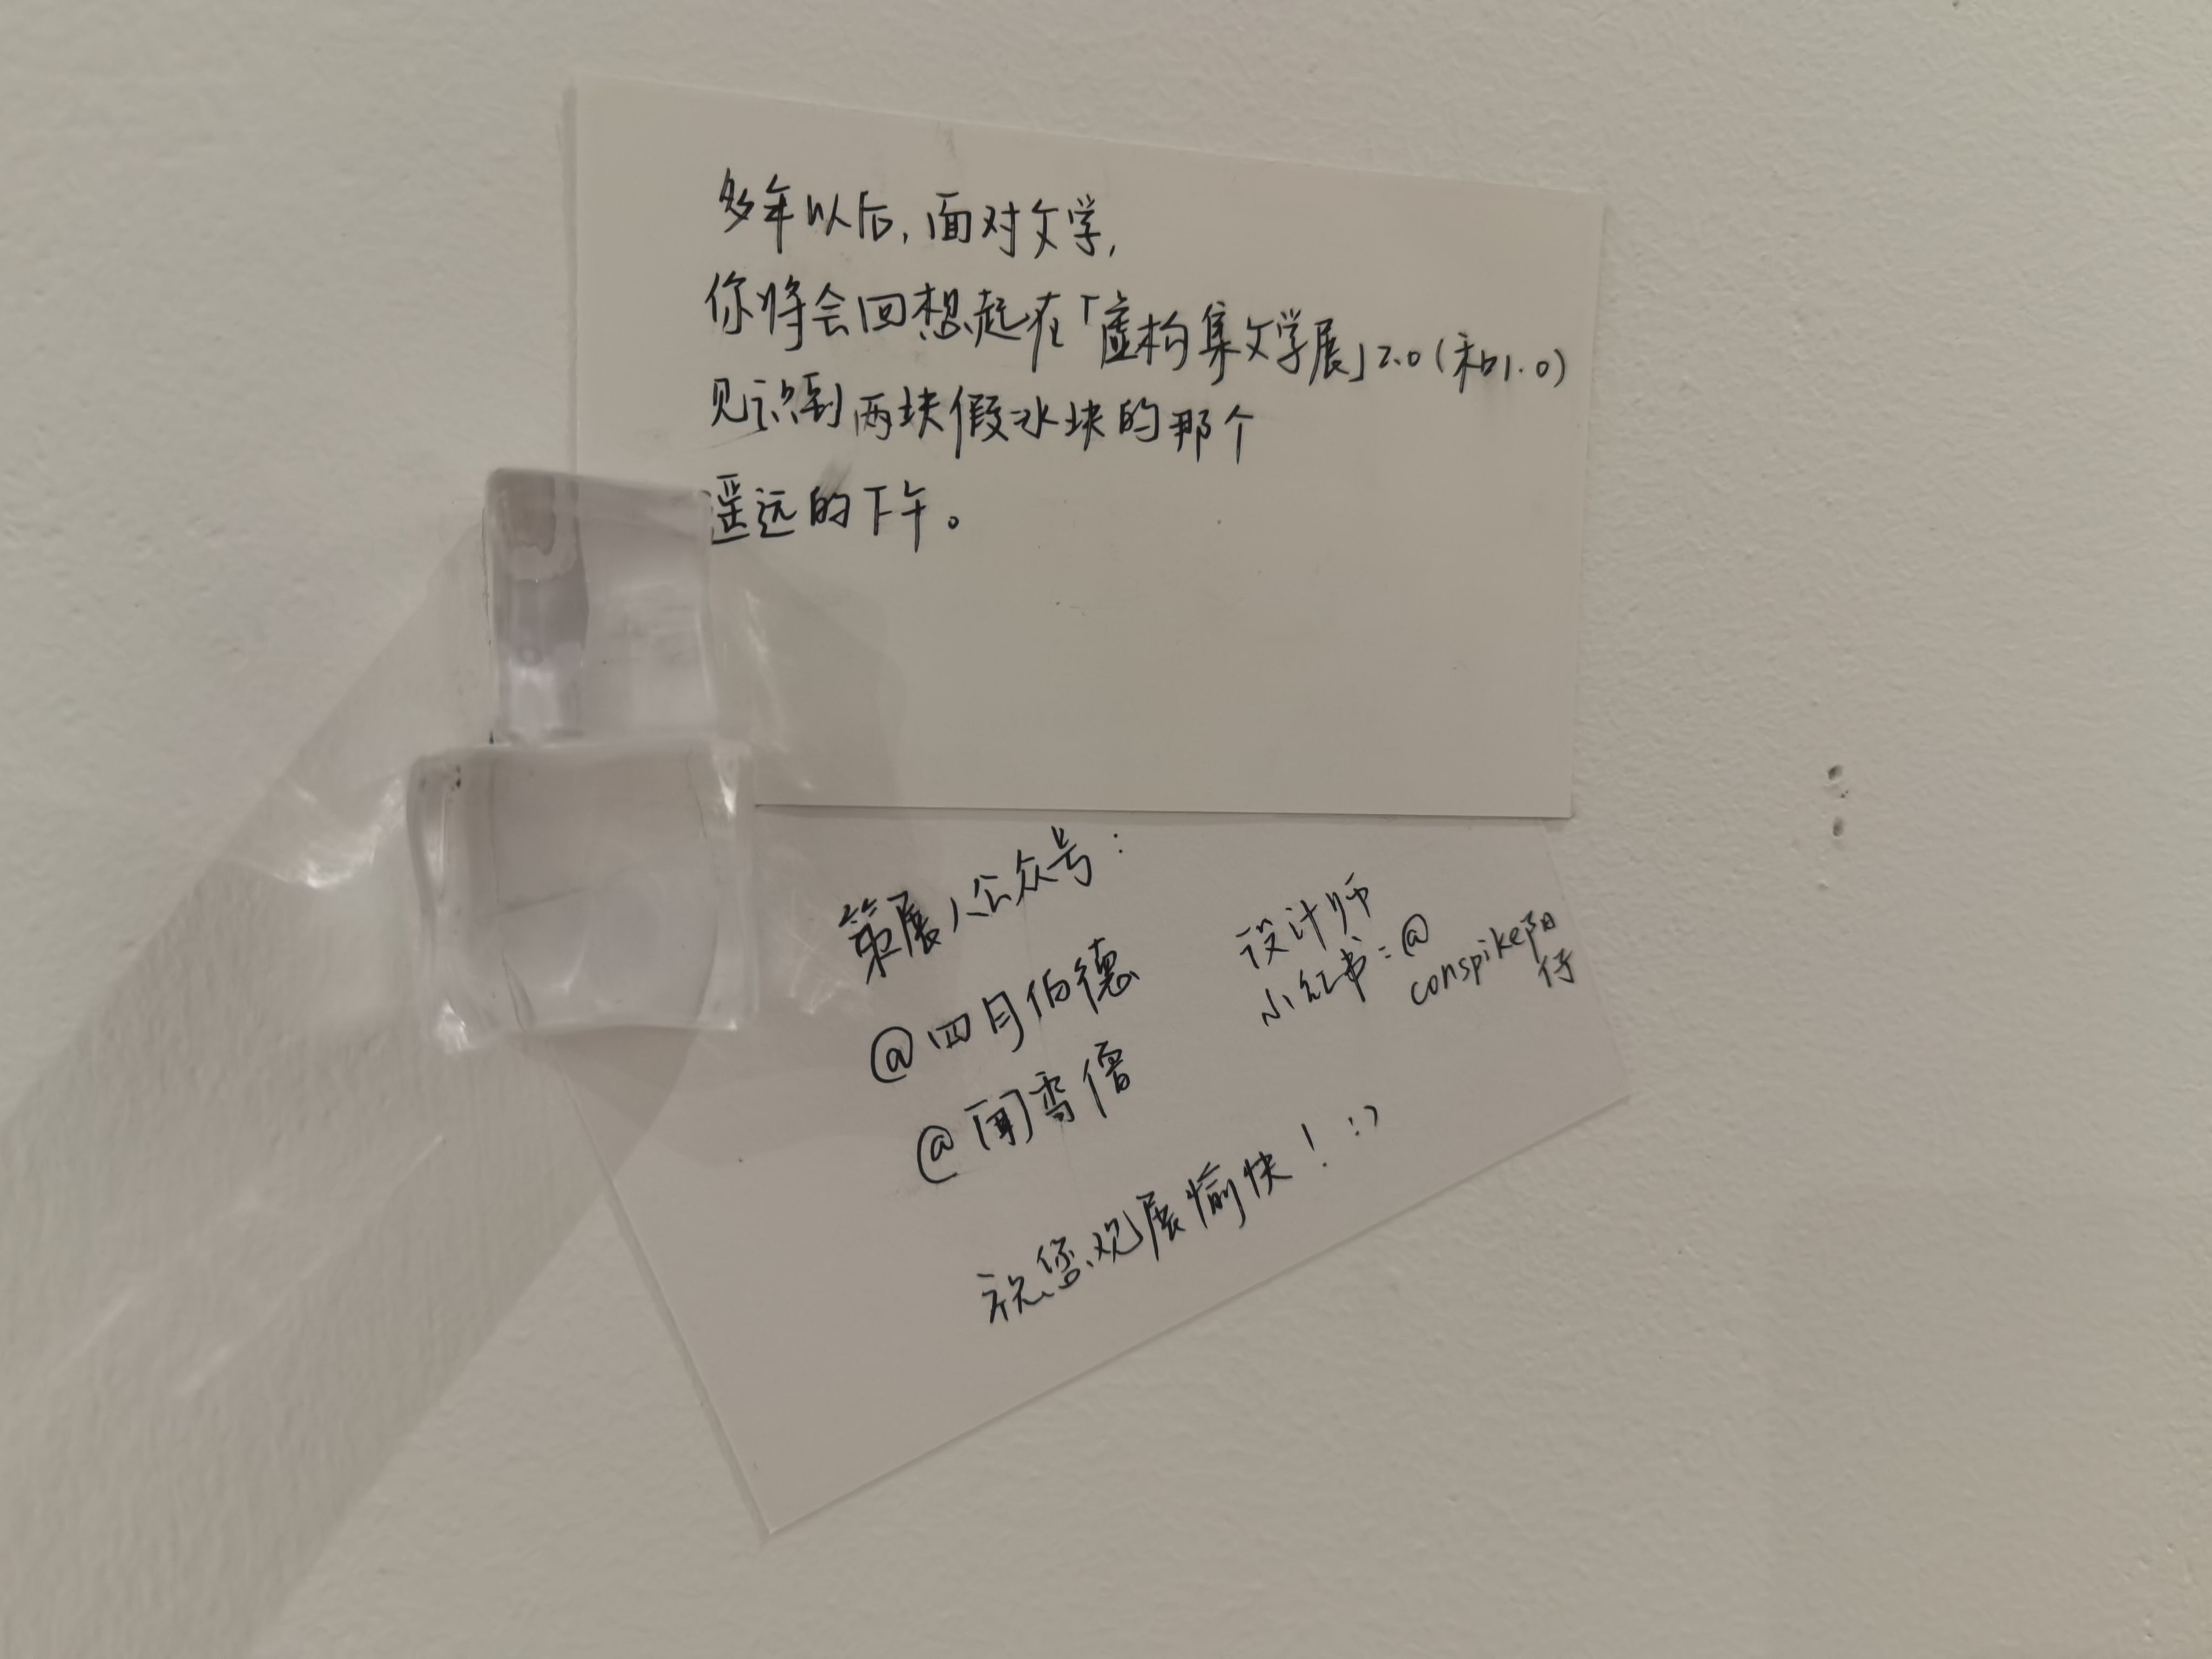 多年以后,面对文学,
你将会回想起在「虚构集文学展」2.0(和1.0)
见识到两块假冰块的那个
遥远的下午。
策展人公众号:
@四月伯德
@闻鸾僧
设计师
小红书:@
conspike阳
仔
祝您观展愉快!:)